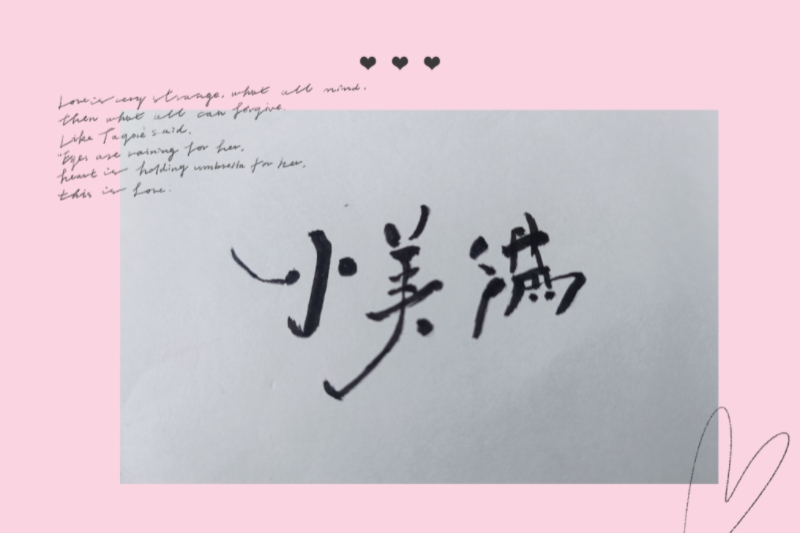 Love is very strange. what all mind.
then what all can forgive.
Like Tagore said.
"Eyes are raining for her,
heart is holding umbrella for her,
this is love.
小美满